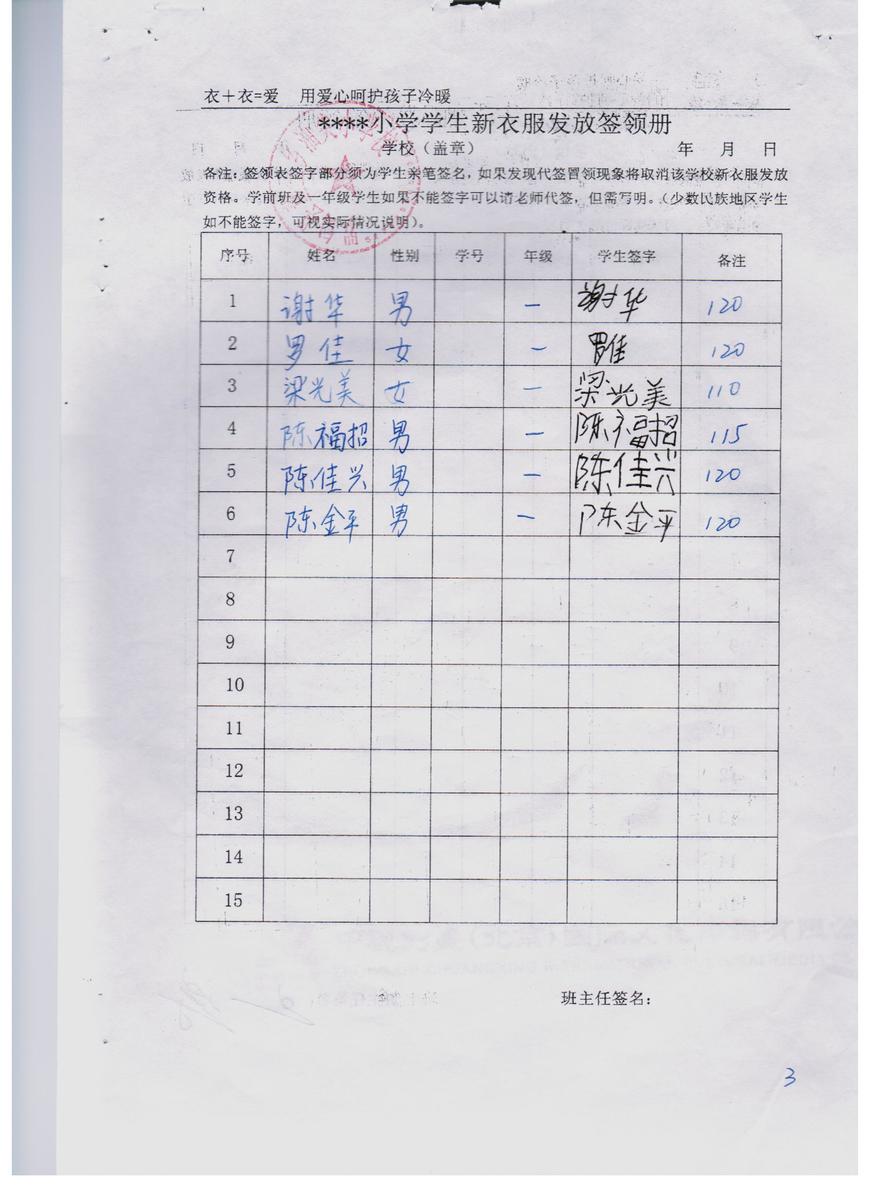 衣＋衣=爱 用爱心呵护孩子冷暖
****小学学生新衣服发放签领册
学校（盖章） 年 月 日
备注：签领表签字部分须为学生亲笔签名，如果发现代签冒领现象将取消该学校新衣服发放
资格。学前班及一年级学生如果不能签字可以请老师代签，但需写明。（少数民族地区学生
如不能签字，可视实际情况说明）。
序号 姓名 性别 学号 年级 学生签字 备注
1 谢华 男 一 谢华 120
2 罗佳 女 一 罗佳 120
3 梁光美 女 一 梁光美 110
4 陈福招 男 一 陈福招 115
5 陈佳兴 男 一 陈佳兴 120
6 陈金平 男 一 陈金平 120
7
8
9
10
11
12
13
14
15
班主任签名：
3